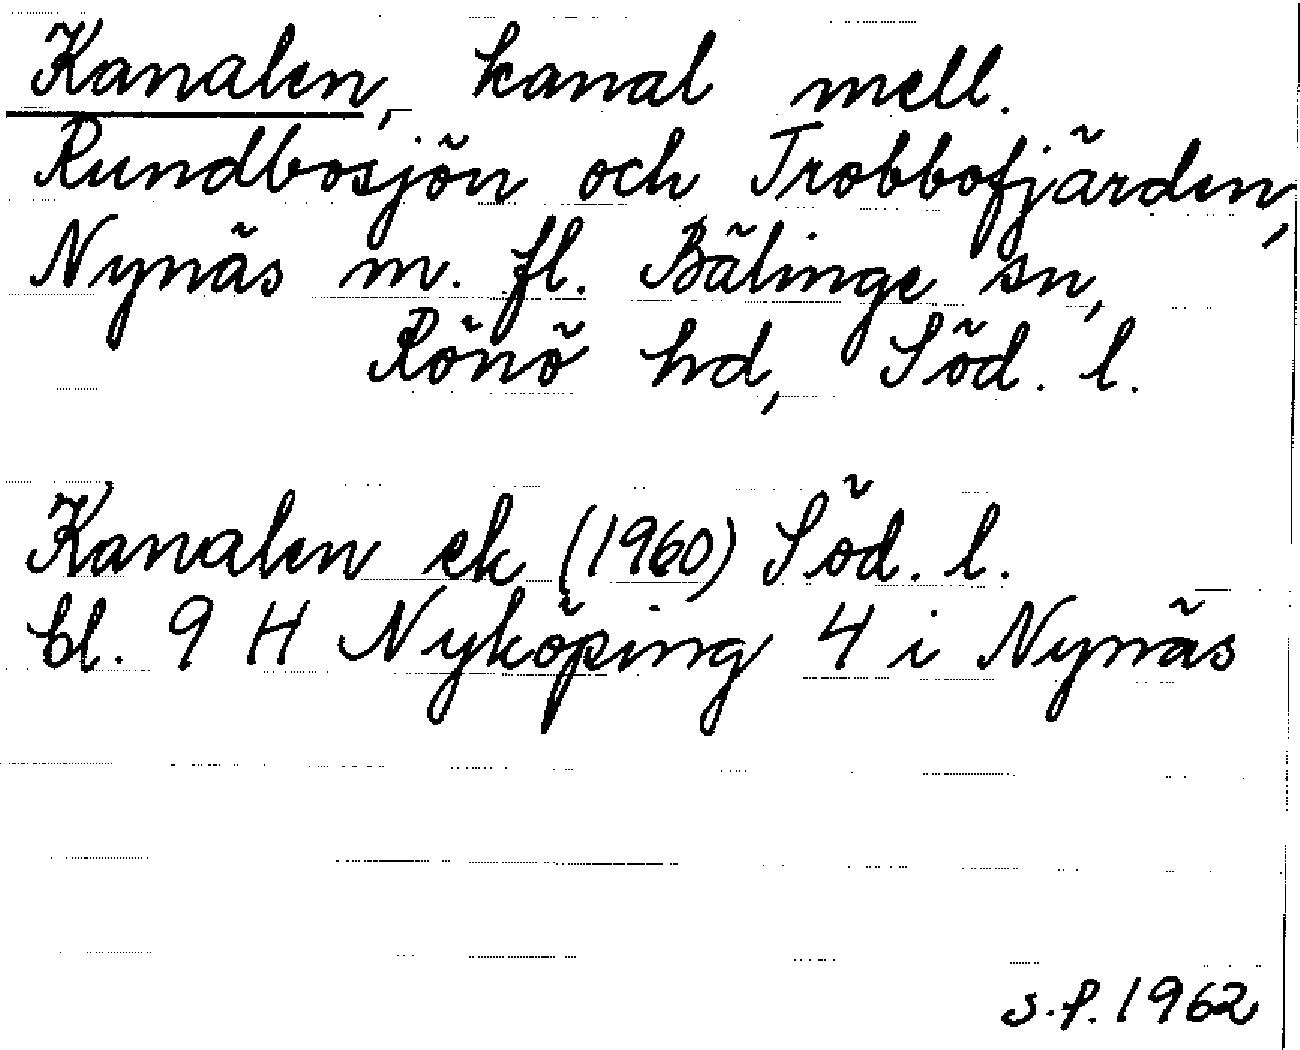 Kanalen, kanal mell.
Rundbosjön och Trobbofjärden,
Nynäs m. fl. Bälinge sn,
Rönö hd, Söd. l.
Kanalen ek (1960) Söd. l.
bl. 9 H Nyköping 4 i Nynäs
S.P. 1962